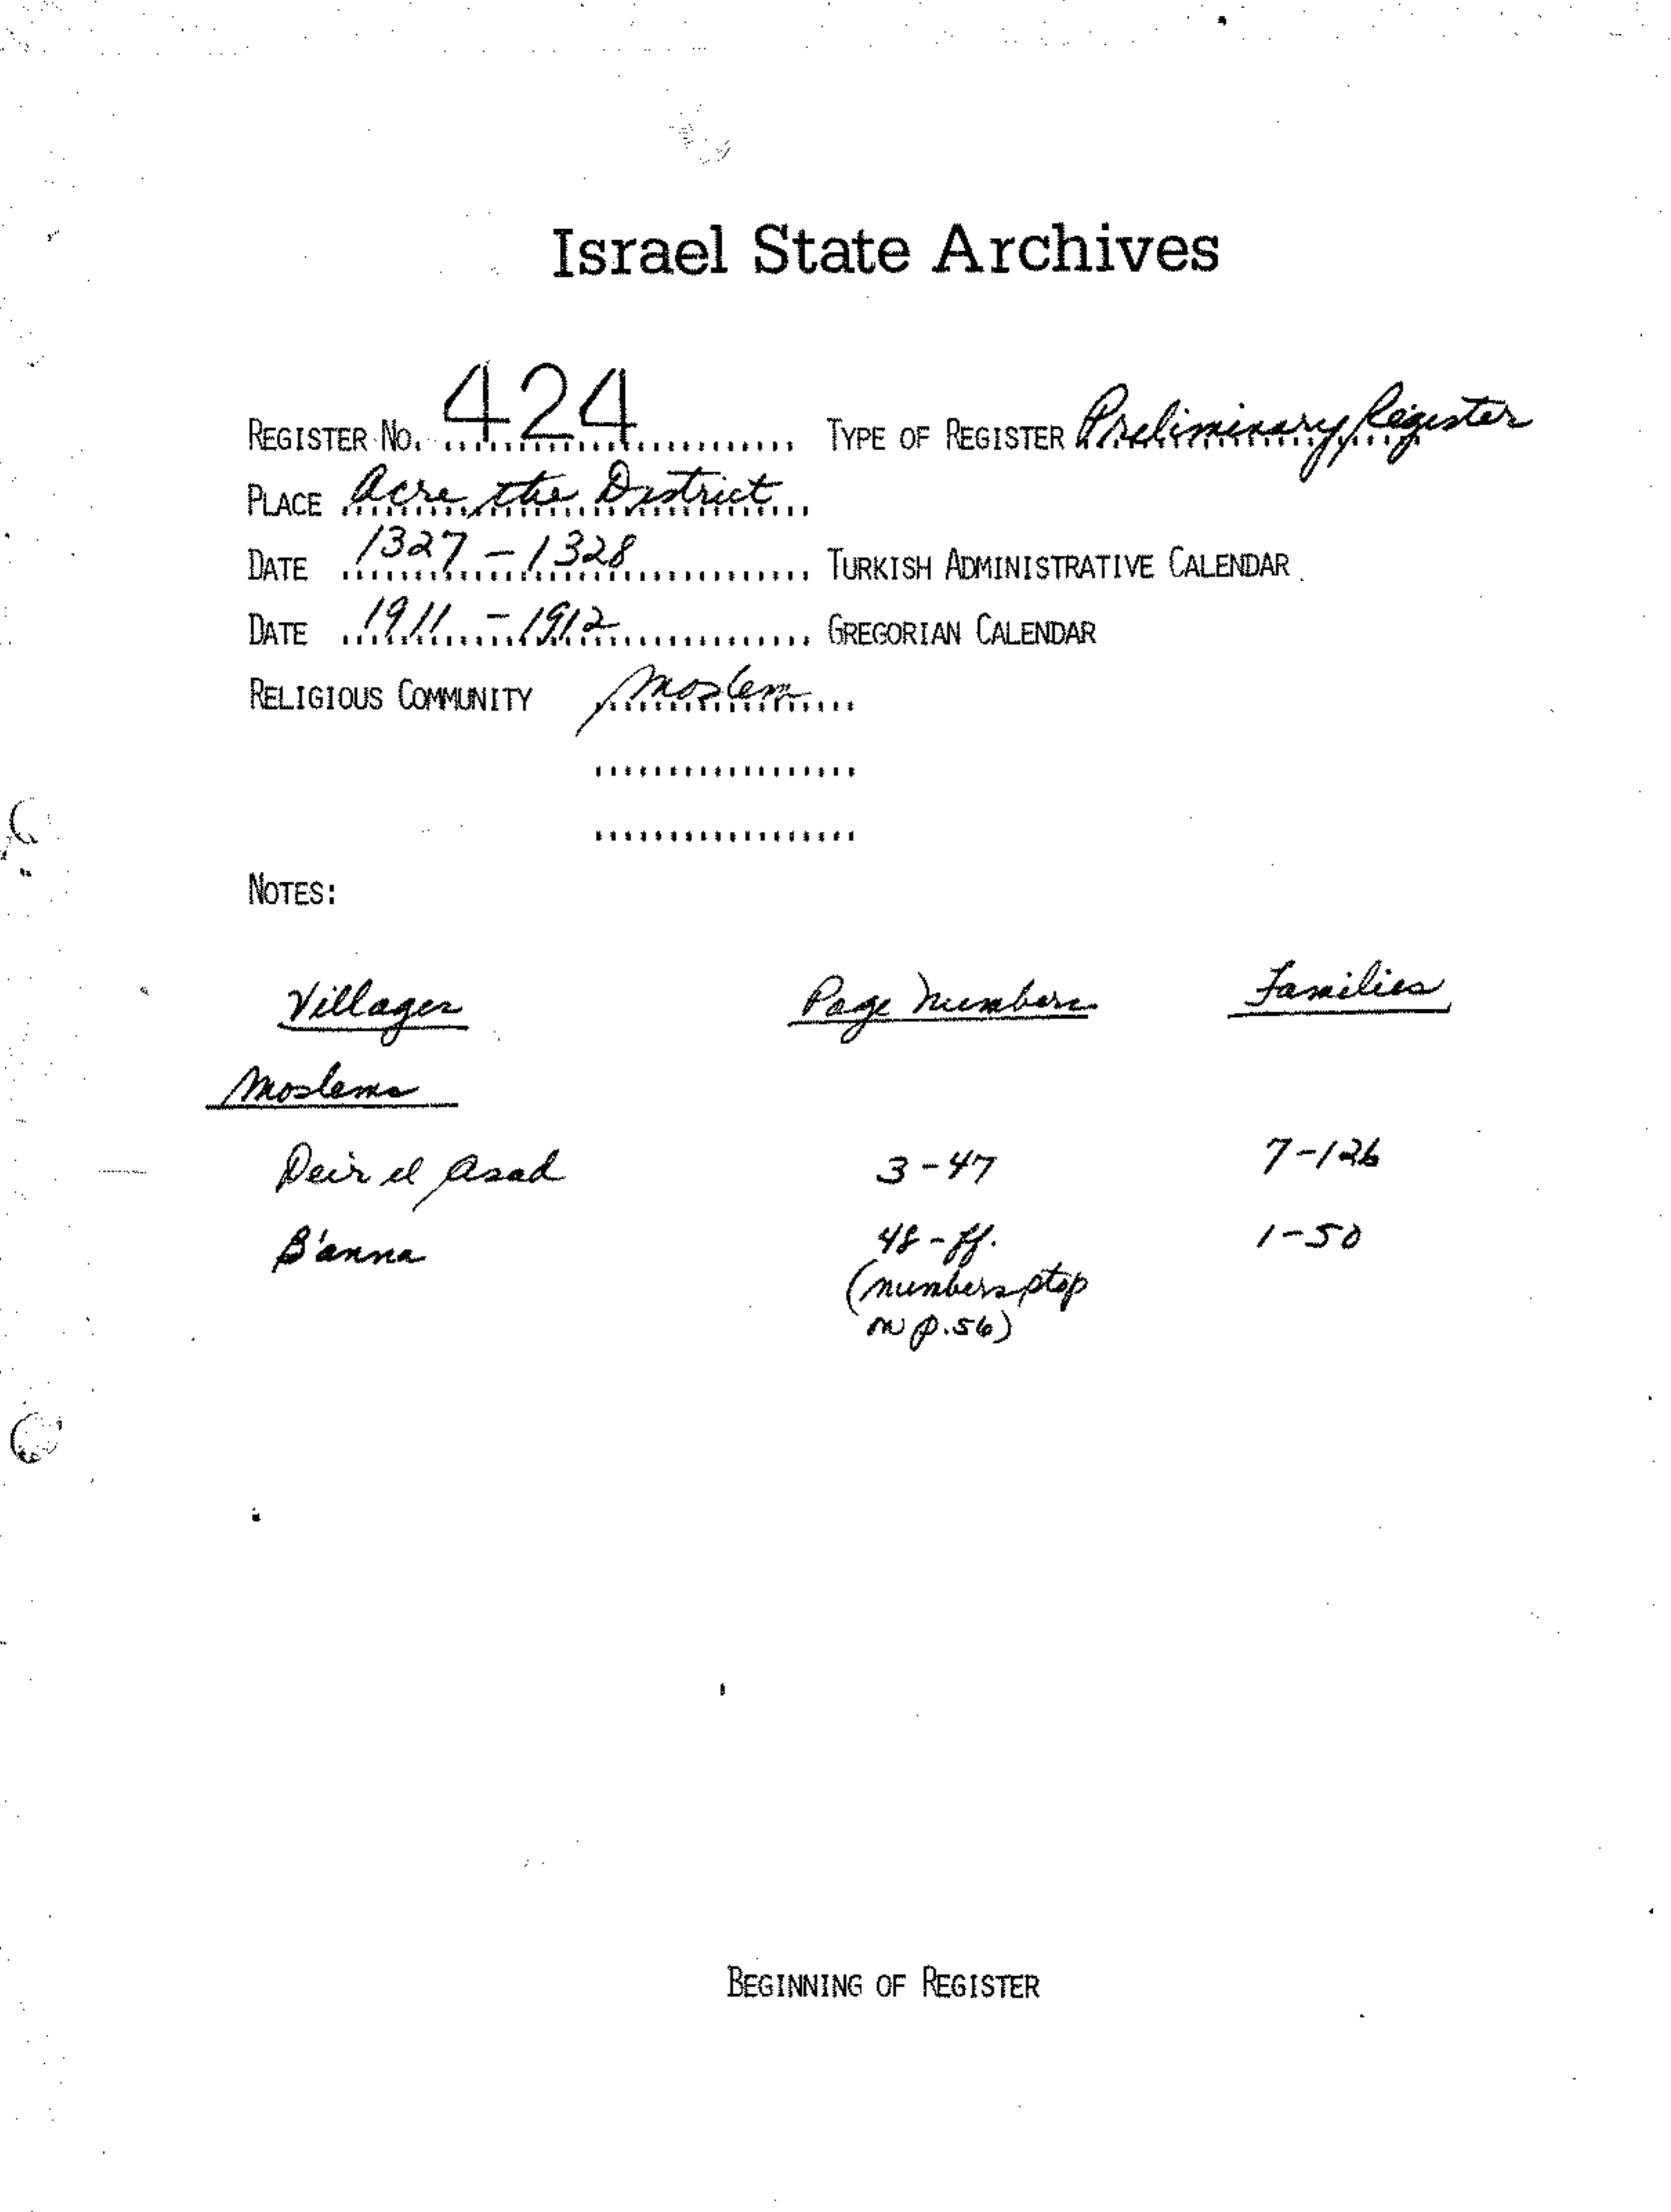 Israel State Archives
REGISTER NO. 424 TYPE OF REGISTER Preliminary Register
PLACE Acre, the District
DATE 1327 - 1328 TURKISH ADMINISTRATIVE CALENDAR
DATE 1911 - 1912 GREGORIAN CALENDAR
RELIGIOUS COMMUNITY Moslem
NOTES:
Villages Page Numbers Families
Moslems
Deir el Asad 3-47 7-126
B'anna 48-ff. 1-50
(numbers stop
on p.56)
BEGINNING OF REGISTER